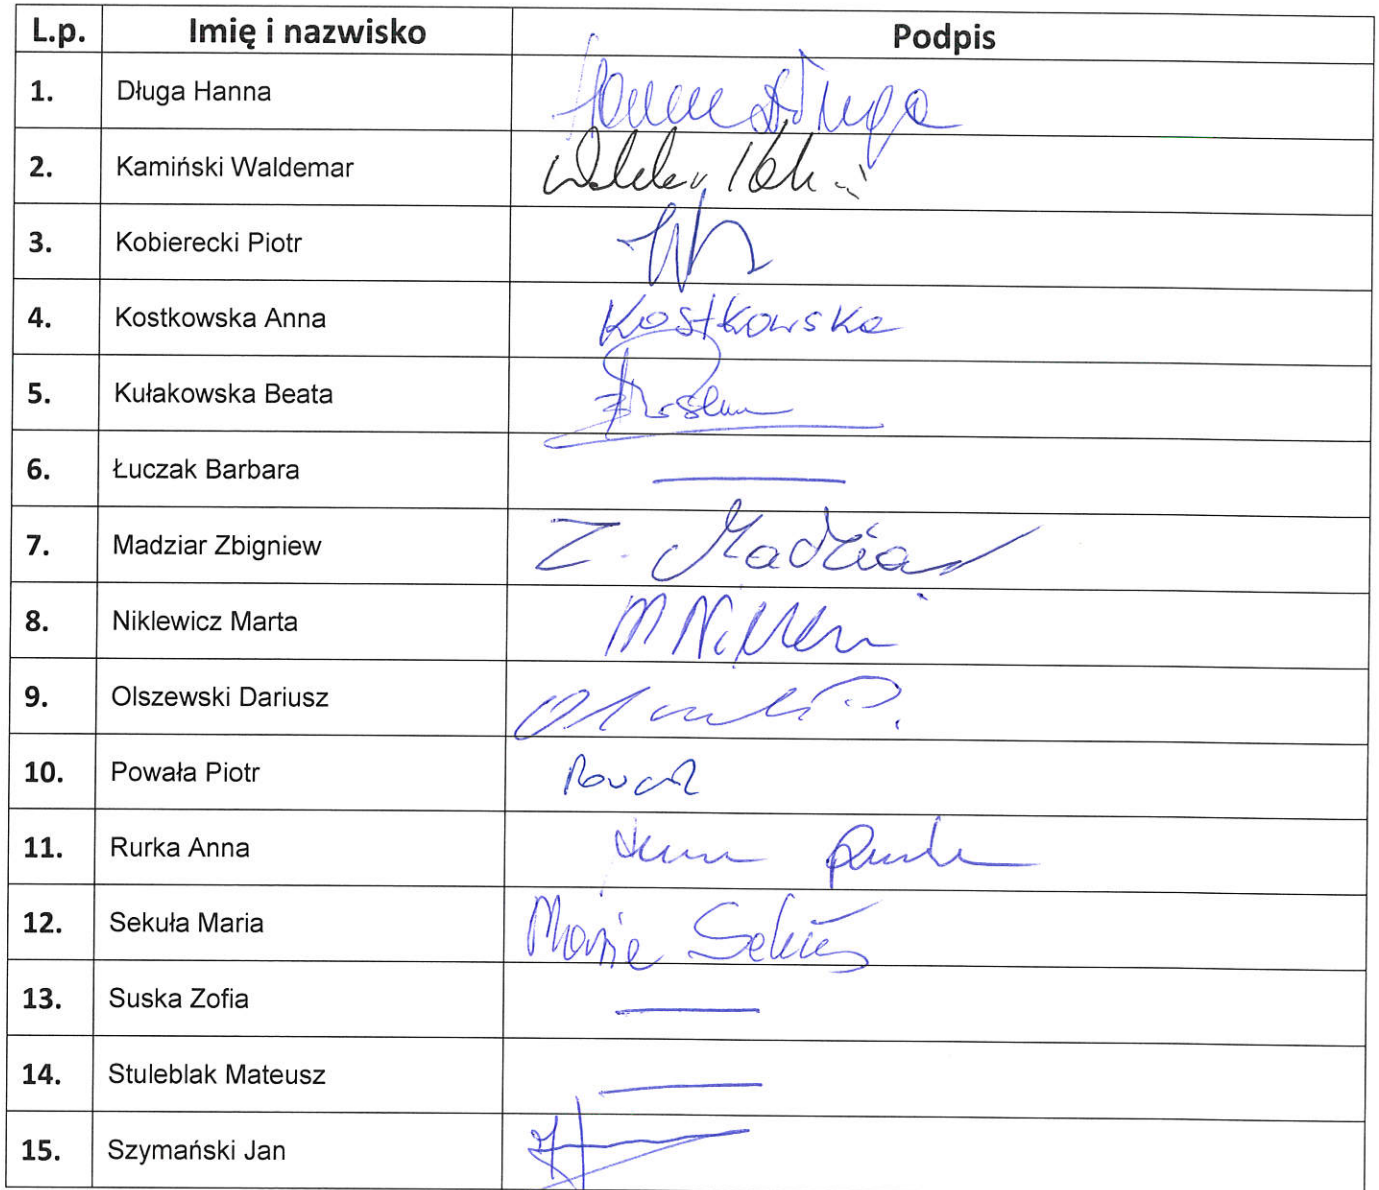 L.p. Imię i nazwisko Podpis
1. Długa Hanna Hanna Długa
2. Kamiński Waldemar
3. Kobierecki Piotr
4. Kostkowska Anna Kostkowska
5. Kułakowska Beata
6. Łuczak Barbara
7. Madziar Zbigniew Z. Madziar
8. Niklewicz Marta
9. Olszewski Dariusz
10. Powała Piotr
11. Rurka Anna
12. Sekuła Maria Maria
13. Suska Zofia
14. Stuleblak Mateusz
15. Szymański Jan